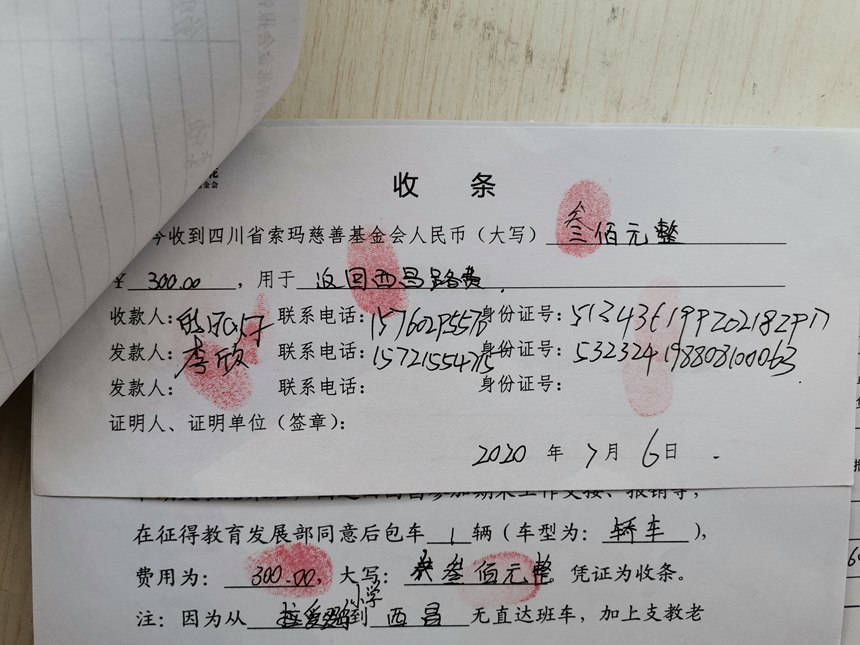 基金会
收 条
今收到四川省索玛慈善基金会人民币（大写） 叁佰元整
¥ 300.00 ，用于 返回西昌路费
收款人： 联系电话： 身份证号：
发款人：李欣 联系电话： 身份证号：532324198808100063
发款人： 联系电话： 身份证号：
证明人、证明单位（签章）：
2020 年 7 月 6 日 .
在征得教育发展部同意后包车 1 辆（车型为： 轿车 ），
费用为： 300.00 ，大写： 叁佰元整。凭证为收条。
小学
注：因为从 到 西昌 无直达班车，加上支教老